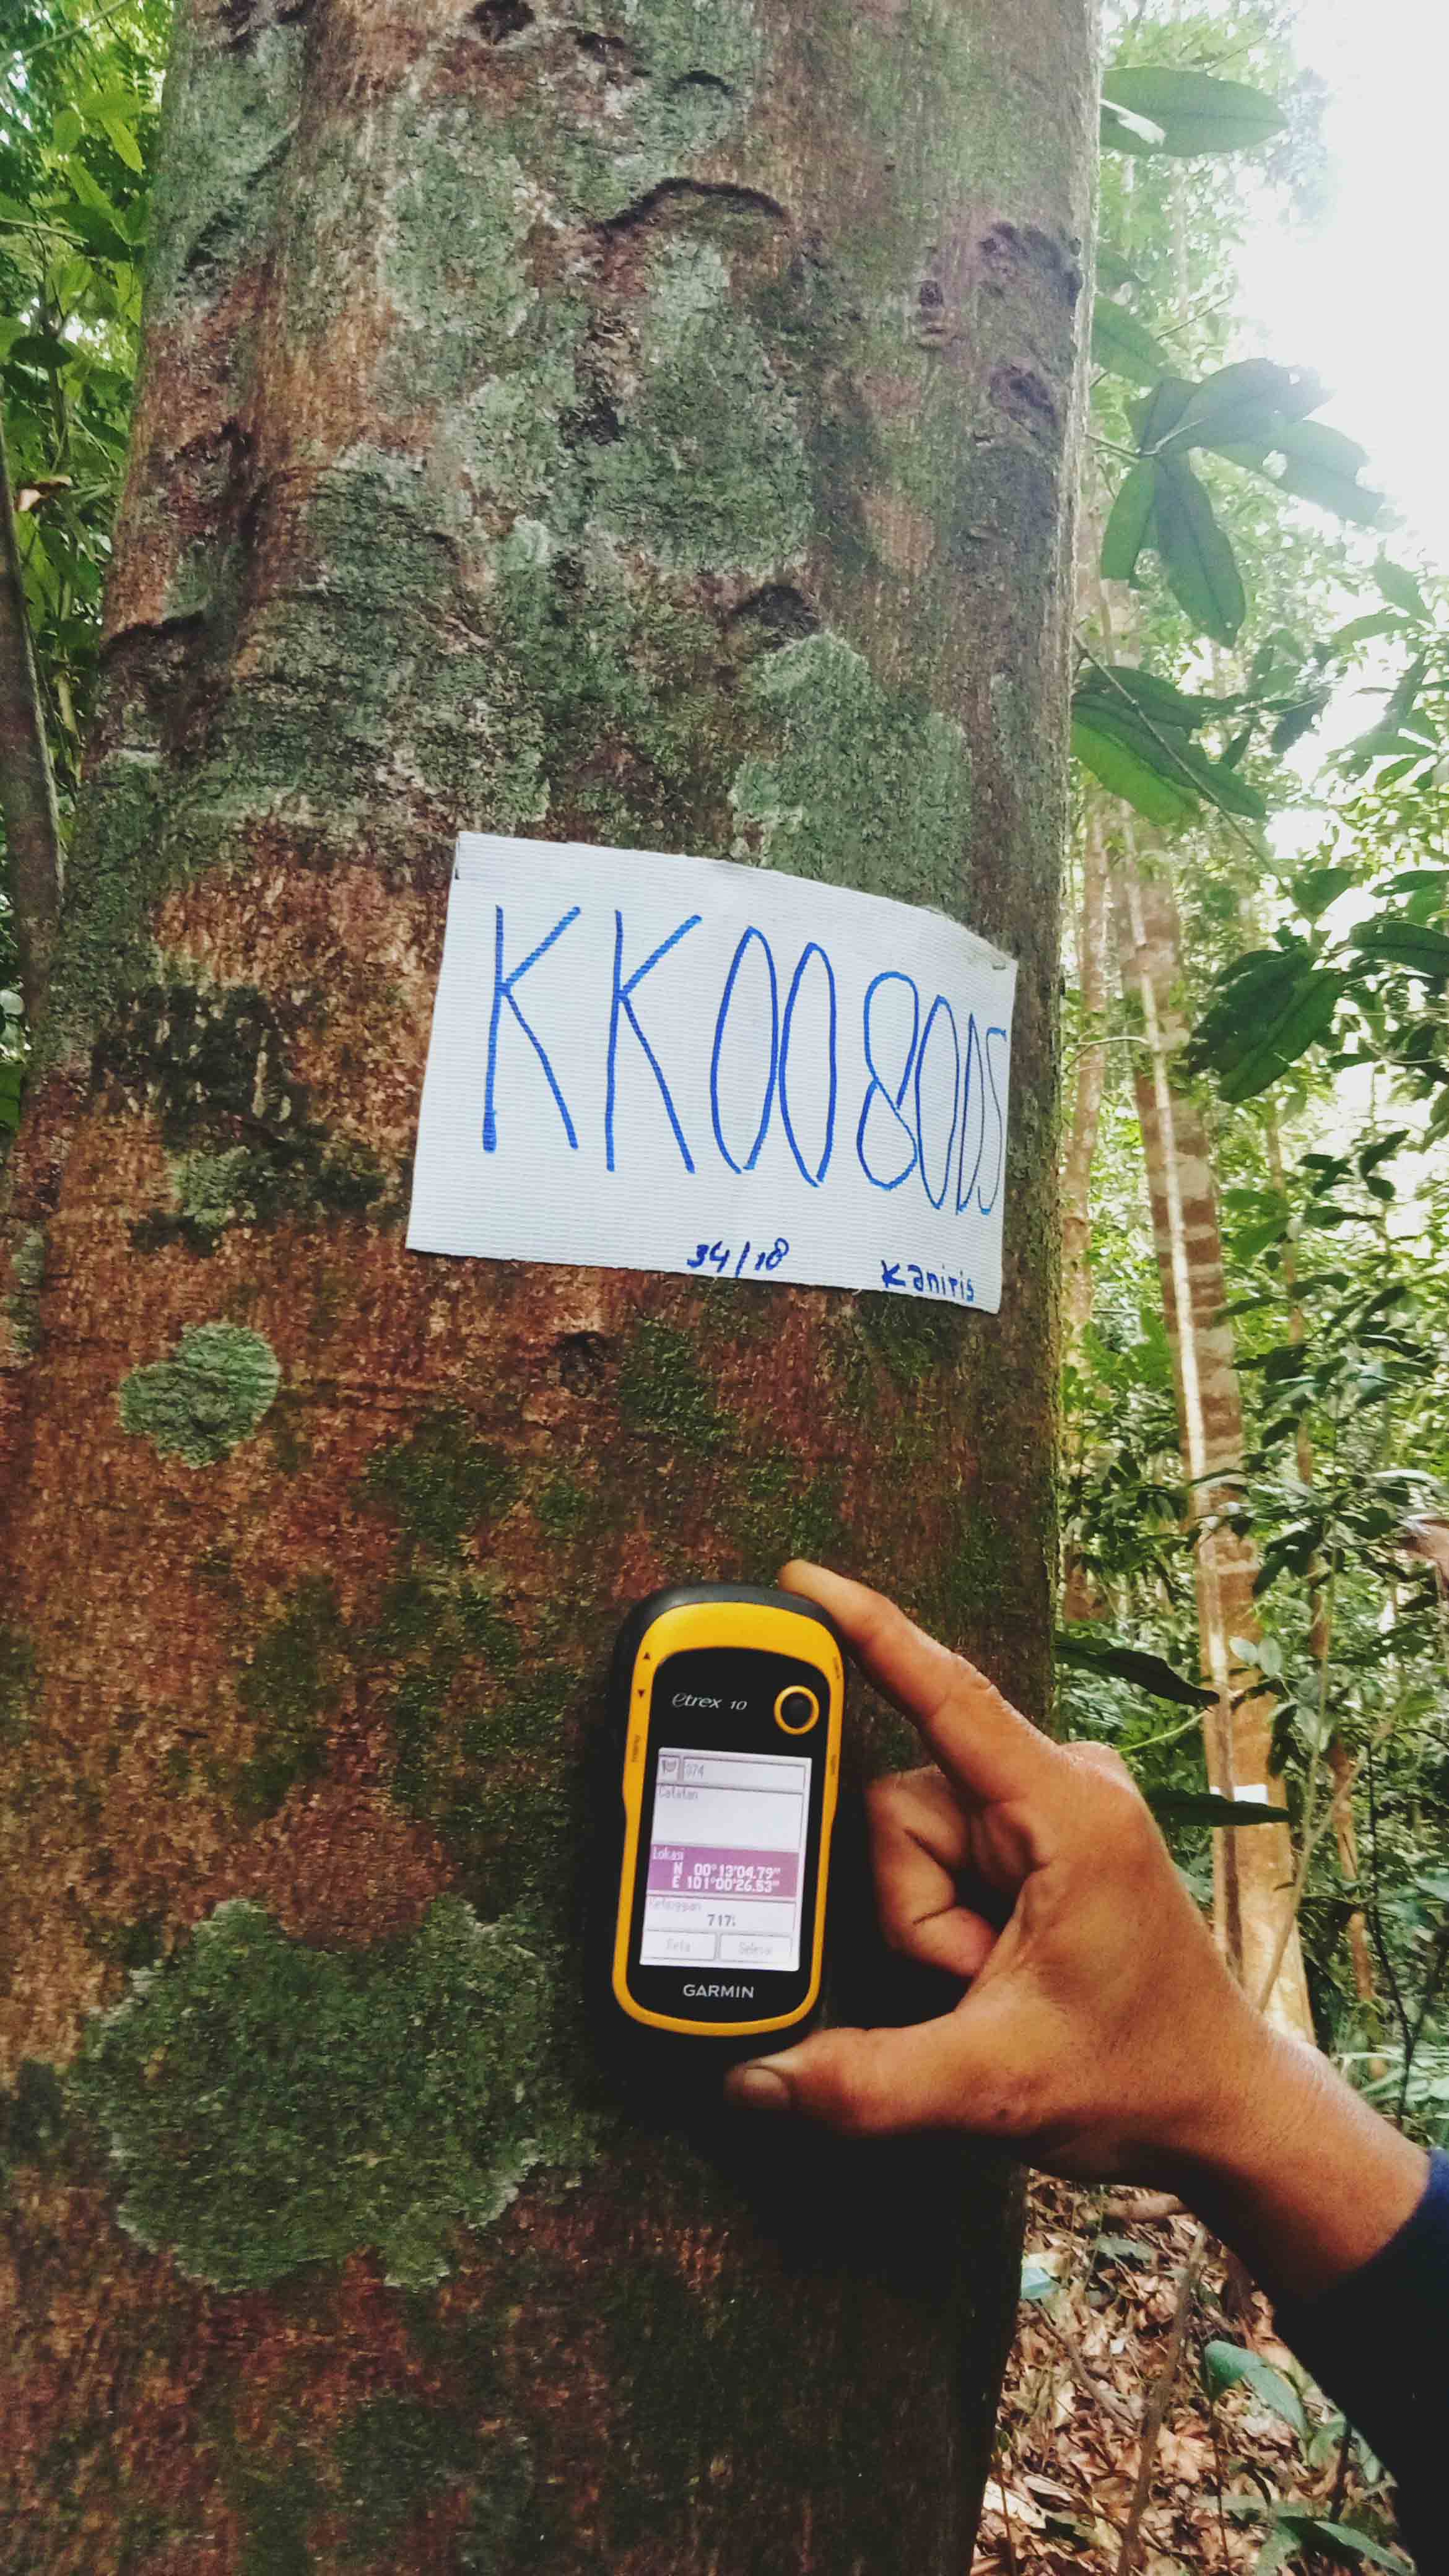 KK0080DS
34/18 Kaniris
etrex 10
374
Catatan
Lokasi
N 00°13'04.79"
E 101°00'26.53"
Ketinggian
717
Peta
Selesai
GARMIN